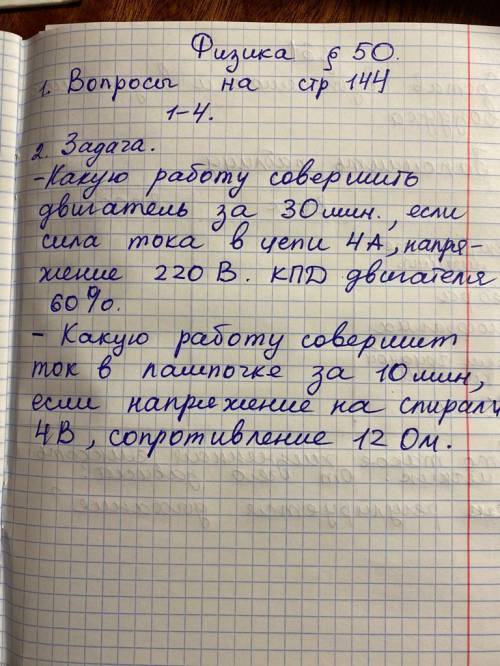 Физика § 50.
1. Вопросы на стр 144
1-4.
2. Задача.
-Какую работу совершить
двигатель за 30 мин., если
сила тока в цепи 4А, напря-
жение 220 В. КПД двигателя
60%.
- Какую работу совершит
ток в лампочке за 10 мин,
если напряжение на спирали
4В, сопротивление 12 Ом.